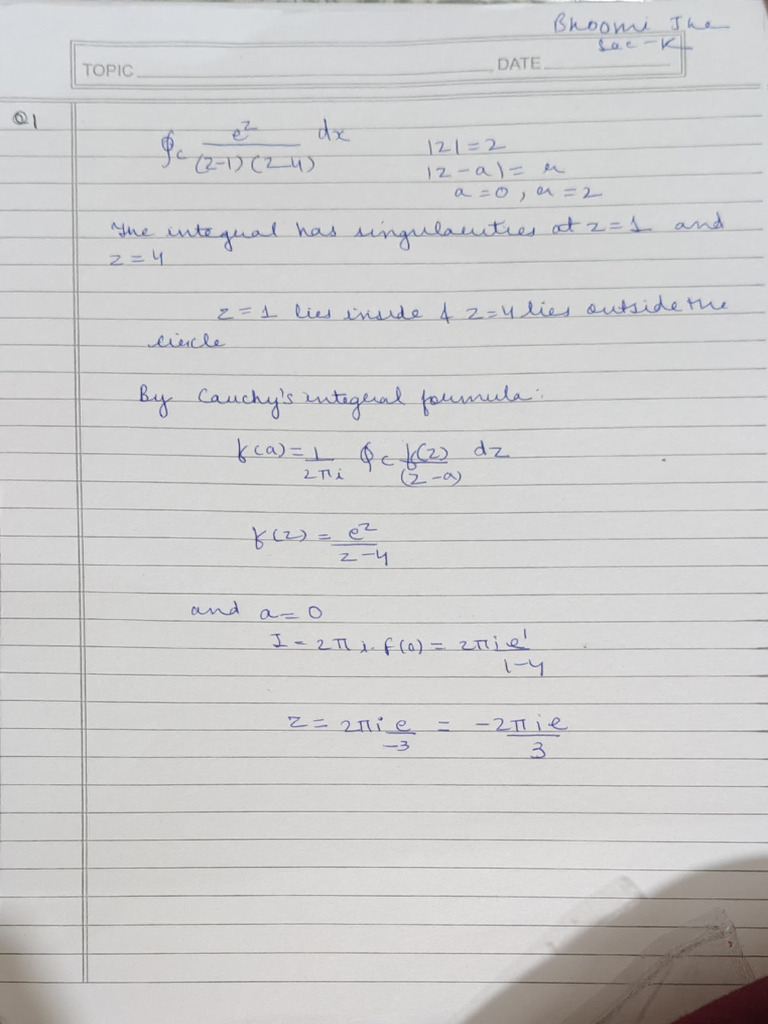 Bhoomi Jha
Sec-K
TOPIC DATE
Q1
∮c e^z / (z-1)(z-4) dx |z|=2
|z-a|= r
a=0, r=2
The integral has singularities at z=1 and
z=4
z=1 lies inside & z=4 lies outside the
circle
By Cauchy's integral formula:
f(a)= 1/2πi ∮c f(z)/(z-a) dz
f(z) = e^z/z-4
and a=0
I = 2πi. f(0) = 2πi e^1/1-4
z = 2πi e/-3 = -2πie/3